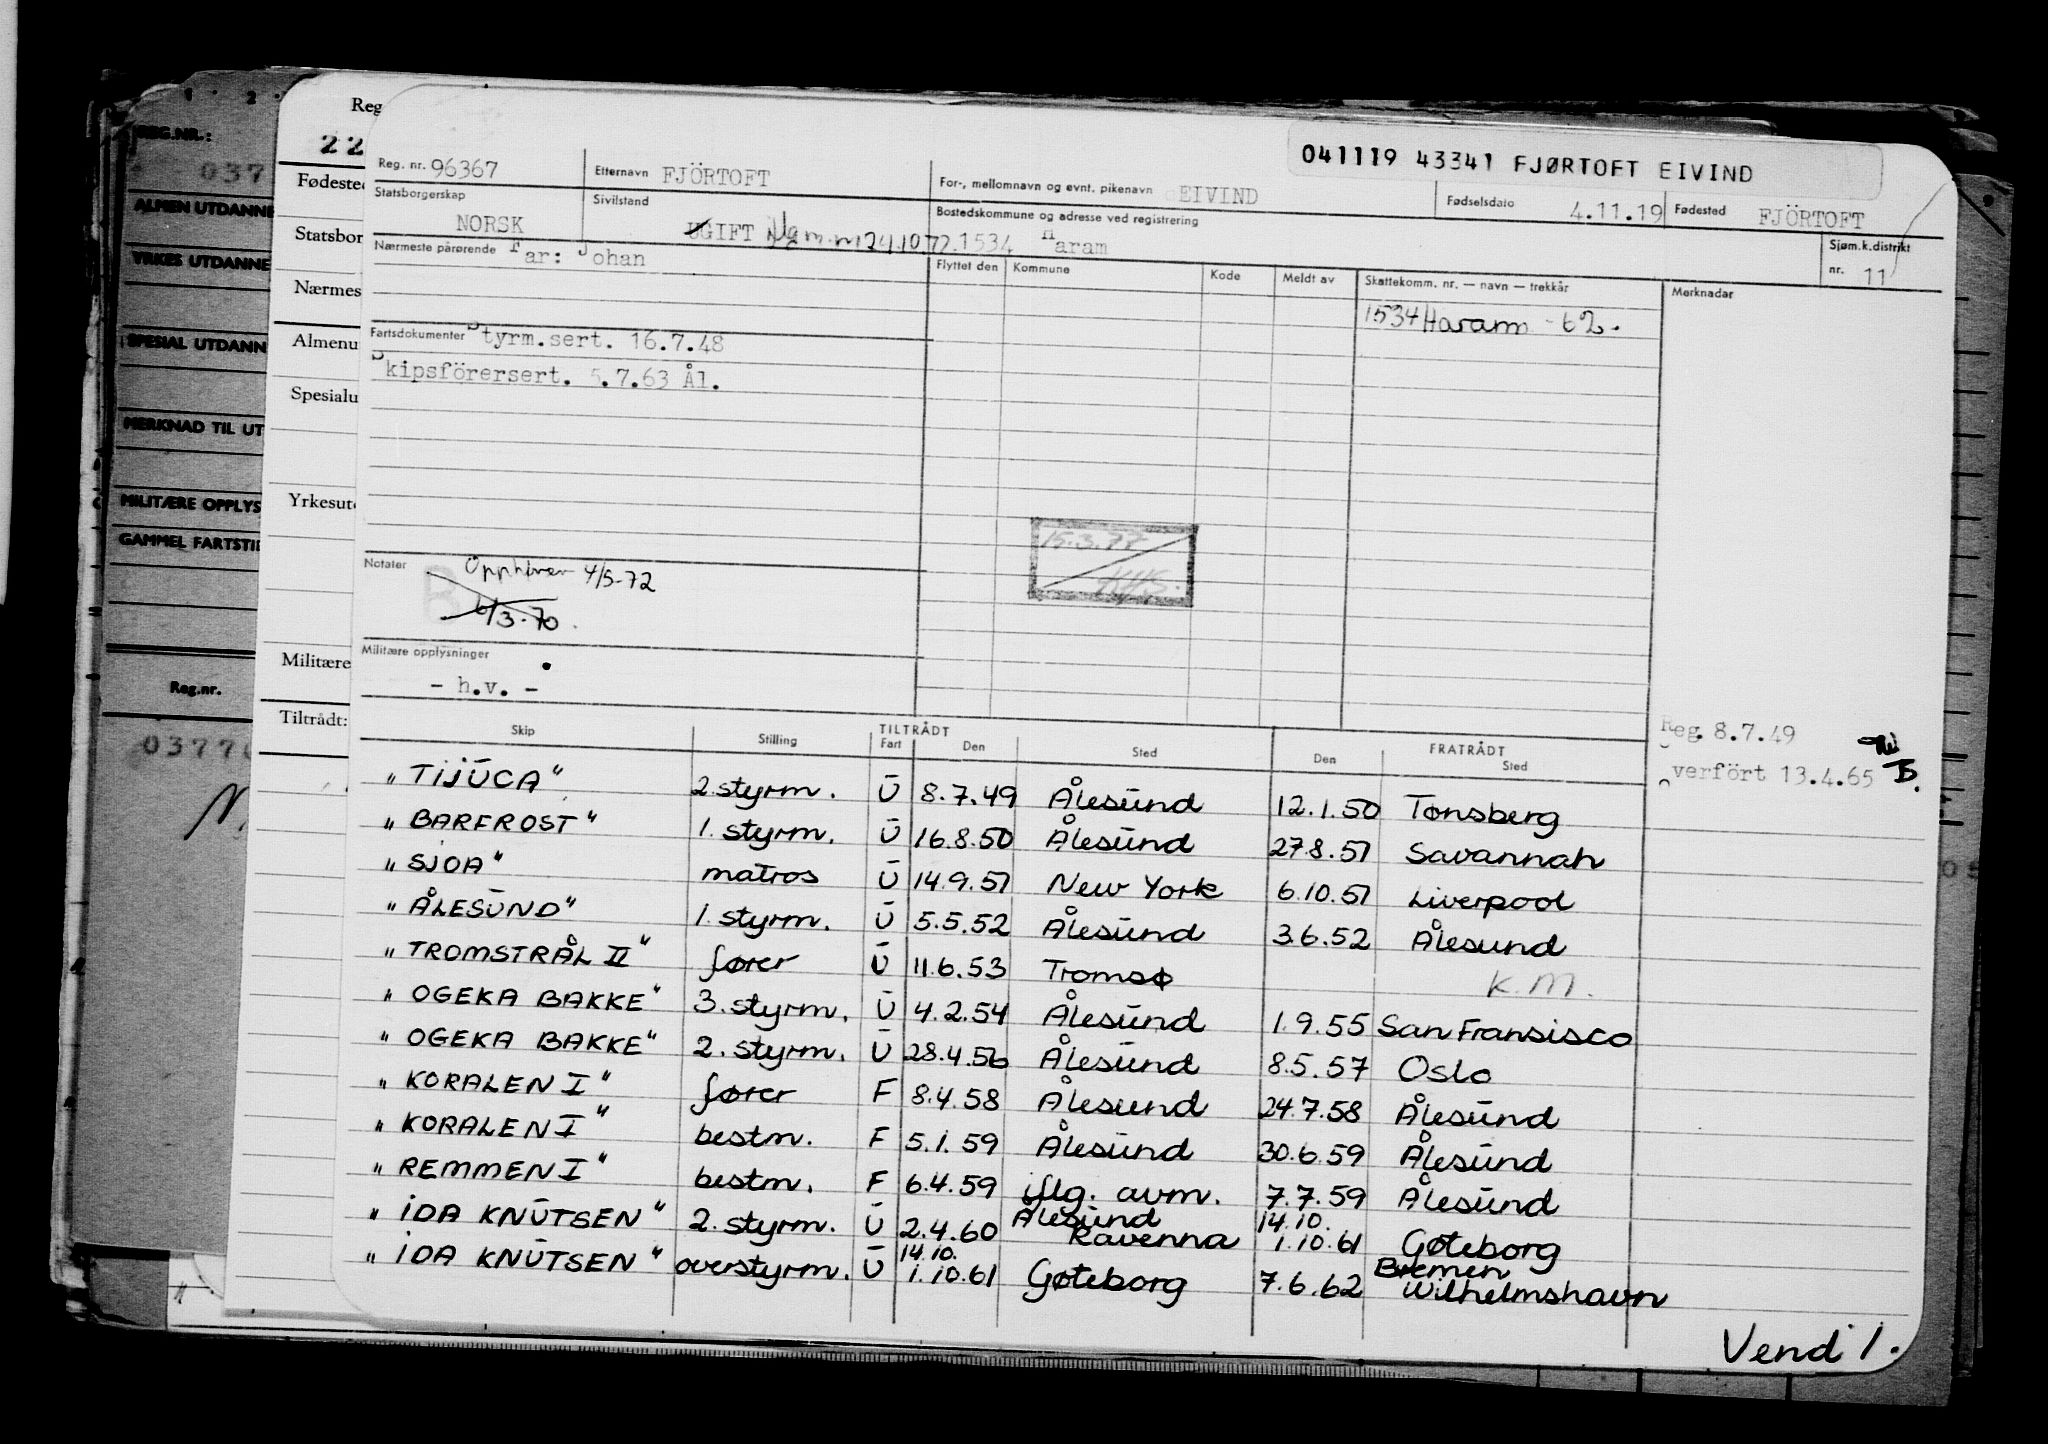 041119 43341 FJØRTOFT EIVIND
Reg. nr. 96367 Etternavn FJÖRTOFT For-, mellomnavn og evnt. pikenavn EIVIND Fødselsdato 4.11.19 Fødested FJÖRTOFT
Statsborgerskap NORSK Sivilstand UGIFT 24.10.72 Bostedskommune og adresse ved registrering 1534 Haram Sjøm.k.distrikt nr. 11
Nærmeste pårørende Far: Johan
Flyttet den Kommune Kode Meldt av Skattekomm. nr. — navn — trekkår Merknader
1534 Haram - 62.
Fartsdokumenter Styrm.sert. 16.7.48
Skipsförersert. 5.7.63 Ål.
15.3.77
Notater Opphører 4/5-72
B 6/3-70.
Militære opplysninger
- h.v. -
Reg. 8.7.49
Overfört 13.4.65
TILTRÅDT FRATRÅDT
Skip Stilling Fart Den Sted Den Sted
"TIJUCA" 2 styrm. U 8.7.49 Ålesund 12.1.50 Tønsberg
"BARFROST" 1. styrm. U 16.8.50 Ålesund 27.8.51 Savannah
"SJOA" matros U 14.9.51 New York 6.10.51 Liverpool
"ÅLESUND" 1. styrm. U 5.5.52 Ålesund 3.6.52 Ålesund
"TROMSTRÅL II" fører U 11.6.53 Tromsø K.M.
"OGEKA BAKKE" 3. styrm. U 4.2.54 Ålesund 1.9.55 San Fransisco
"OGEKA BAKKE" 2. styrm. U 28.4.56 Ålesund 8.5.57 Oslo
"KORALEN I" fører F 8.4.58 Ålesund 24.7.58 Ålesund
"KORALEN I" bestm. F 5.1.59 Ålesund 30.6.59 Ålesund
"REMMEN I" bestm. F 6.4.59 iflg. avm. 7.7.59 Ålesund
"IDA KNUTSEN" 2. styrm. U 2.4.60 Ålesund Ravenna 14.10. 1.10.61 Gøteborg
"IDA KNUTSEN" overstyrm. U 14.10. 1.10.61 Gøteborg 7.6.62 Bremen Wilhelmshavn
Vend 1.
Reg
22
Fødested
Statsbor
Nærmes
Almenu
Spesialu
Yrkesut
Militære
Tiltrådt:
REG.NR.:
037
ALMEN UTDANNE
YRKES UTDANNE
SPESIAL UTDANN
MERKNAD TIL UT
MILITÆRE OPPLYS
GAMMEL FARTSTI
Reg.nr.
0377